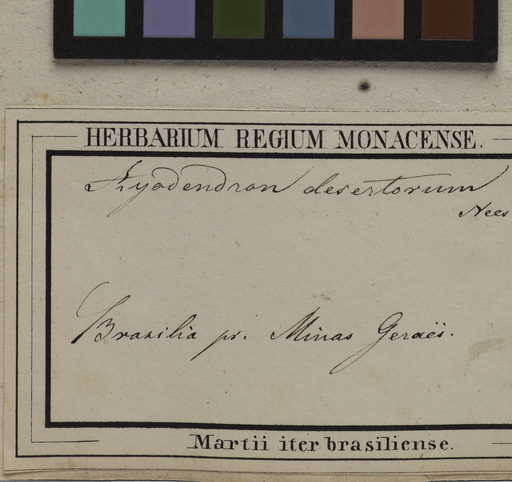 HERBARIUM REGIUM MONACENSE.
Kyodendron desertorum
Nees
Brasilia pr. Minas Geraës.
Martii iter brasiliense.